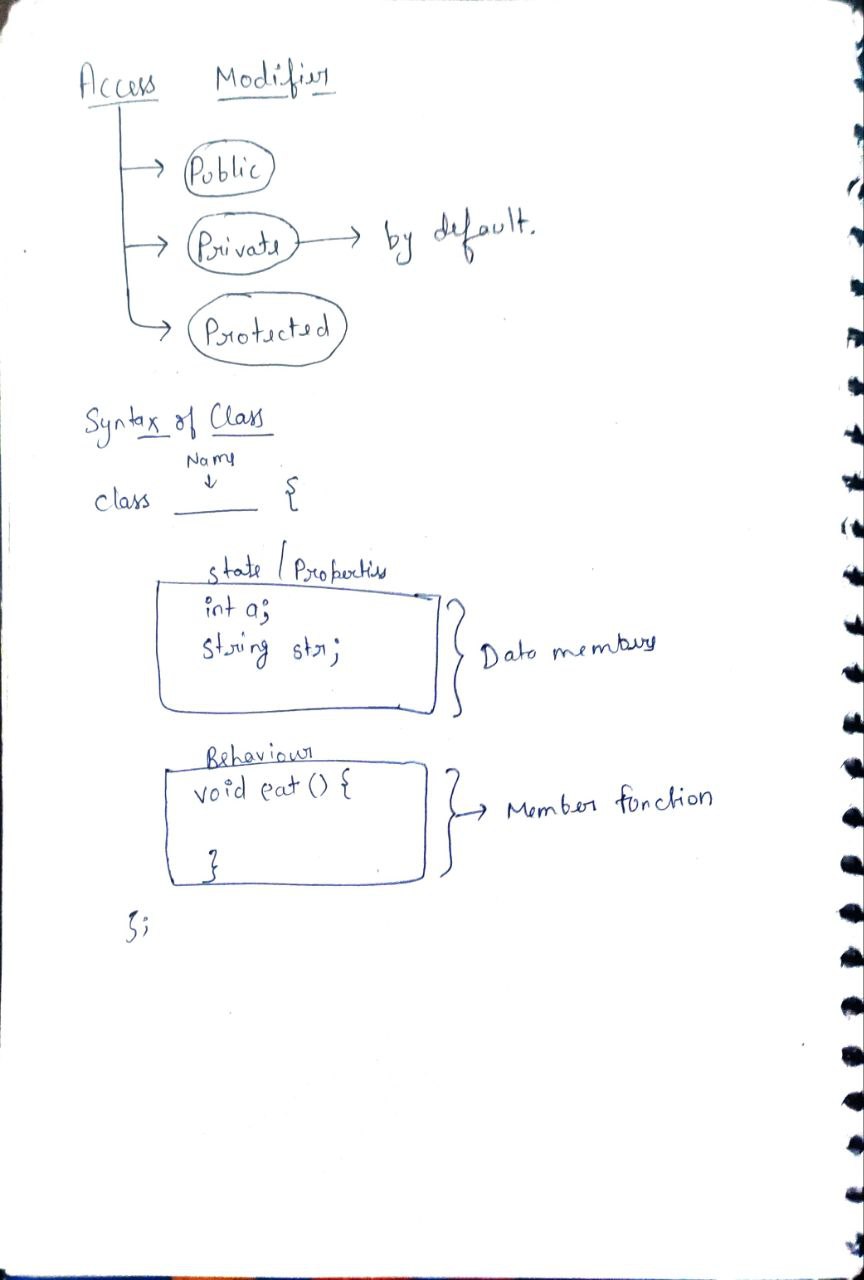 Access Modifier
Public
Private → by default.
Protected
Syntax of Class
Name
↓
class ____ {
state / Properties
int a;
string str;
Data members
Behaviour
void eat () {
}
→ Member function
};